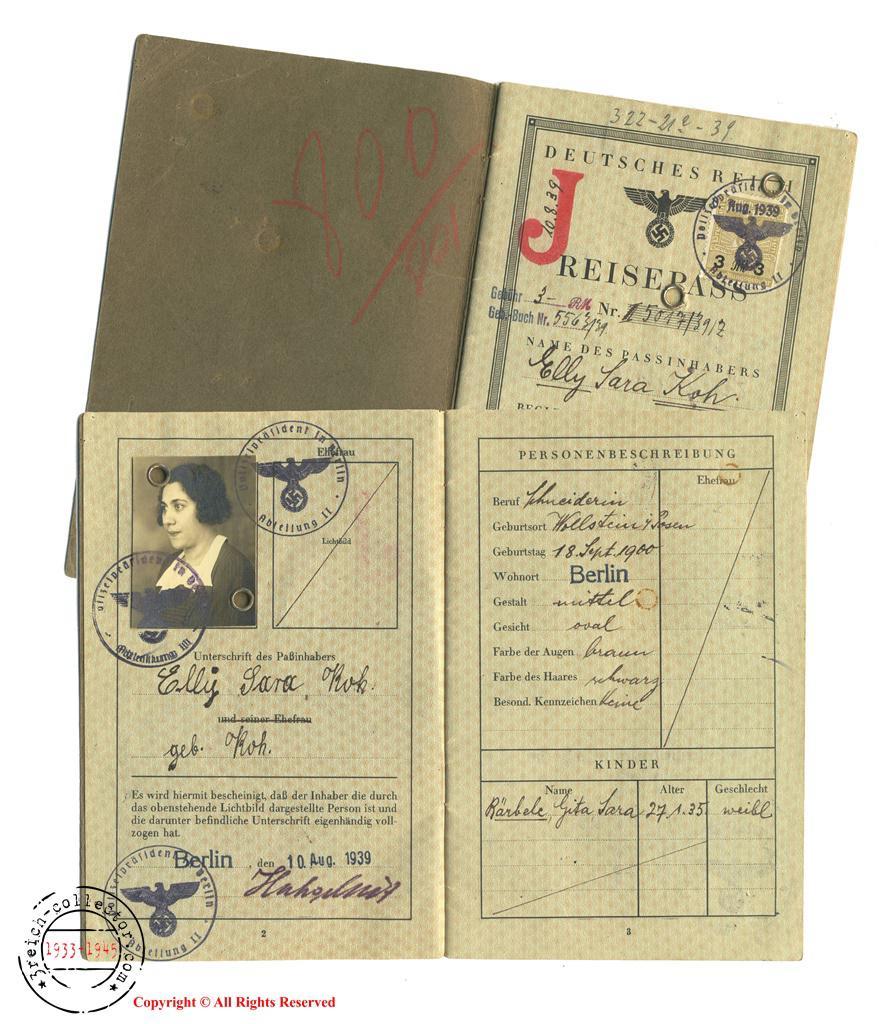 800
322-21a-39
DEUTSCHES REICH
J
10.8.39
Polizeipräsident in Berlin
Abteilung II
Aug. 1939
3 RM 3
REISEPASS
Gebühr 3- RM Nr. II 5017/3912
Geb.-Buch Nr. 5563/39
NAME DES PASSINHABERS
Elly Sara Koh.
Polizeipräsident in Berlin
Abteilung II
Ehefrau
Lichtbild
Unterschrift des Paßinhabers
Elly Sara Koh.
und seiner Ehefrau
geb. Koh.
Es wird hiermit bescheinigt, daß der Inhaber die durch
das obenstehende Lichtbild dargestellte Person ist und
die darunter befindliche Unterschrift eigenhändig voll-
zogen hat.
Berlin, den 10. Aug. 1939
Polizeipräsident in Berlin
Abteilung II
2
PERSONENBESCHREIBUNG
Ehefrau
Beruf Schneiderin
Geburtsort Wollstein / Posen
Geburtstag 18. Sept. 1900
Wohnort Berlin
Gestalt mittel
Gesicht oval
Farbe der Augen braun
Farbe des Haares schwarz
Besond. Kennzeichen keine
KINDER
Name Alter Geschlecht
Bärbele Gita Sara 27.1.35. weibl
3
3reich-collector.com
1933-1945
Copyright © All Rights Reserved